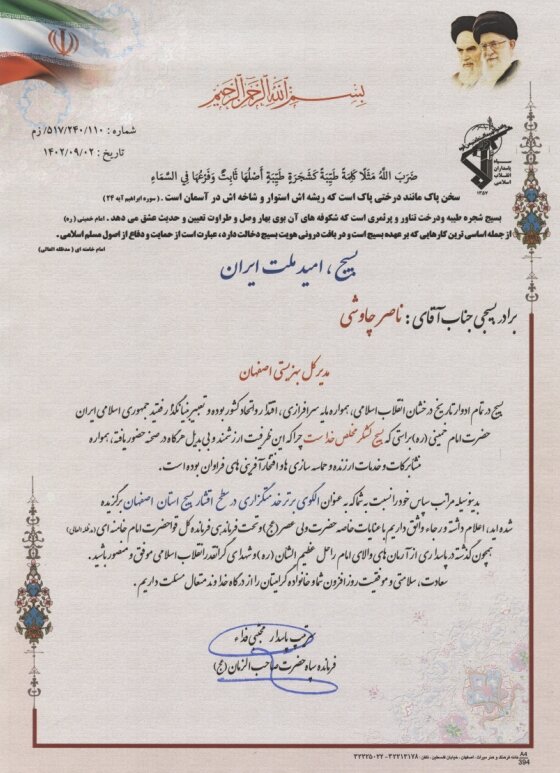 بِسْمِ اللَّهِ الرَّحْمَنِ الرَّحِيمِ
شماره : ۵۱۷/۲۴۰/۱۱۰/ز م
تاریخ : ۱۴۰۲/۰۹/۰۲
سپاه
پاسداران
انقلاب
اسلامی
۱۳۵۷
ضَرَبَ اللَّهُ مَثَلًا كَلِمَةً طَيِّبَةً كَشَجَرَةٍ طَيِّبَةٍ أَصْلُهَا ثَابِتٌ وَفَرْعُهَا فِي السَّمَاءِ
سخن پاک مانند درختی پاک است که ریشه اش استوار و شاخه اش در آسمان است . (سوره ابراهیم آیه ۲۴)
بسیج شجره طیبه و درخت تناور و پرثمری است که شکوفه های آن بوی بهار وصل و طراوت تعیین و حدیث عشق می دهد . امام خمینی ( ره )
از جمله اساسی ترین کارهایی که بر عهده بسیج است و در بافت درونی هویت بسیج دخالت دارد، عبارت است از حمایت و دفاع از اصول مسلم اسلامی .
امام خامنه ای ( مدظله العالی )
بسیج ، امید ملت ایران
برادر بسیجی جناب آقای : ناصر چاوشی
مدیر کل بهزیستی اصفهان
بسیج در تمام ادوار تاریخ درخشان انقلاب اسلامی، همواره مایه سرافرازی، اقتدار و اتحاد کشور بوده و تعبیر بنیانگذار فقید جمهوری اسلامی ایران
حضرت امام خمینی (ره) براستی که بسیج لشکر مخلص خداست چرا که این ظرفیت ارزشمند و بی بدیل هرگاه در صحنه حضور یافته، همواره
منشا برکات و خدمات ارزنده و حماسه سازی ها و افتخارآفرینی های فراوان بوده است.
بدینوسیله مراتب سپاس خود را نسبت به شما که به عنوان الگوی برتر خدمتگزاری در سطح اقشار بسیج استان اصفهان برگزیده
شده اید، اعلام داشته و رجاء واثق داریم با عنایات خاصه حضرت ولی عصر (عج) و تحت فرماندهی فرمانده کل قوا حضرت امام خامنه ای (مدظله العالی)
همچون گذشته در پاسداری از آرمان های والای امام راحل عظیم الشان (ره) و شهدای گرانقدر انقلاب اسلامی موفق و منصور باشید.
سعادت، سلامتی و موفقیت روز افزون شما و خانواده گرامیتان را از درگاه خداوند متعال مسئلت داریم .
سرتیپ پاسدار مجتبی فداء
فرمانده سپاه حضرت صاحب الزمان (عج)
خانه فرهنگ و هنر میراث ، اصفهان ، خیابان فلسطین ، تلفن : ۳۲۲۱۳۱۷۸ - ۳۲۲۳۵۰۲۲
A4
394